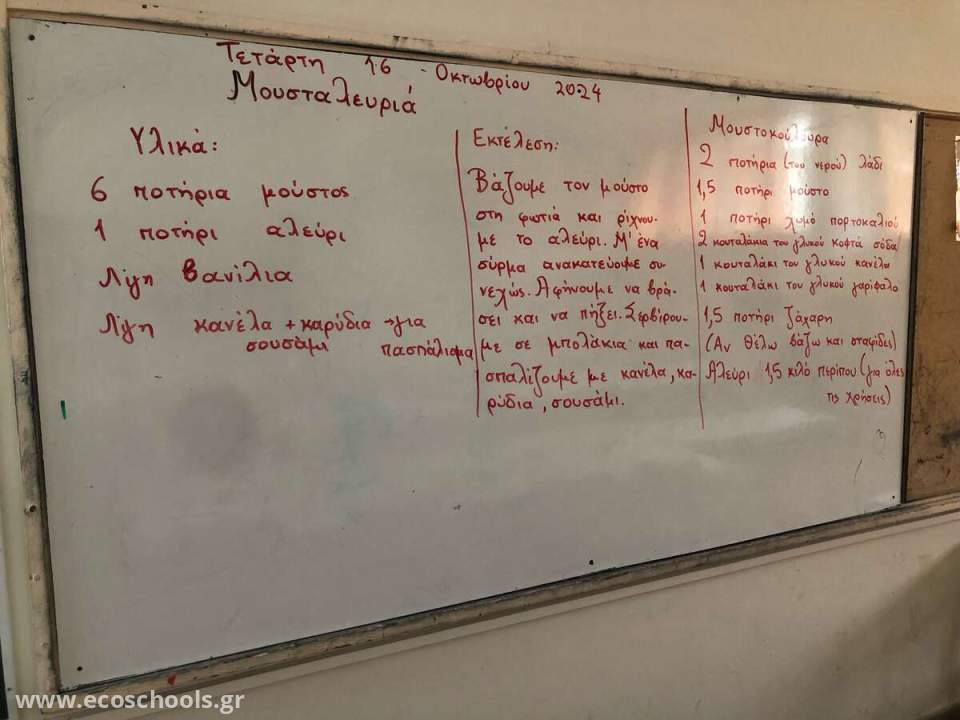 Τετάρτη 16 - Οκτωβρίου 2024
Μουσταλευριά
Υλικά:
6 ποτήρια μούστος
1 ποτήρι αλεύρι
Λίγη βανίλια
Λίγη κανέλα + καρύδια → για
σουσάμι πασπάλισμα
Εκτέλεση:
Βάζουμε τον μούστο
στη φωτιά και ρίχνου-
με το αλεύρι. Μ' ένα
σύρμα ανακατεύουμε συ-
νεχώς. Αφήνουμε να βρά-
σει και να πήξει. Σερβίρου-
με σε μπολάκια και πα-
σπαλίζουμε με κανέλα, κα-
ρύδια, σουσάμι.
Μουστοκούλουρα
2 ποτήρια (του νερού) λάδι
1,5 ποτήρι μούστο
1 ποτήρι χυμό πορτοκαλιού
2 κουταλάκια του γλυκού κοφτά σόδα
1 κουταλάκι του γλυκού κανέλα
1 κουταλάκι του γλυκού γαρίφαλο
1,5 ποτήρι ζάχαρη
(Αν θέλω βάζω και σταφίδες)
Αλεύρι 1,5 κιλό περίπου (για όλες
τις χρήσεις)
www.ecoschools.gr